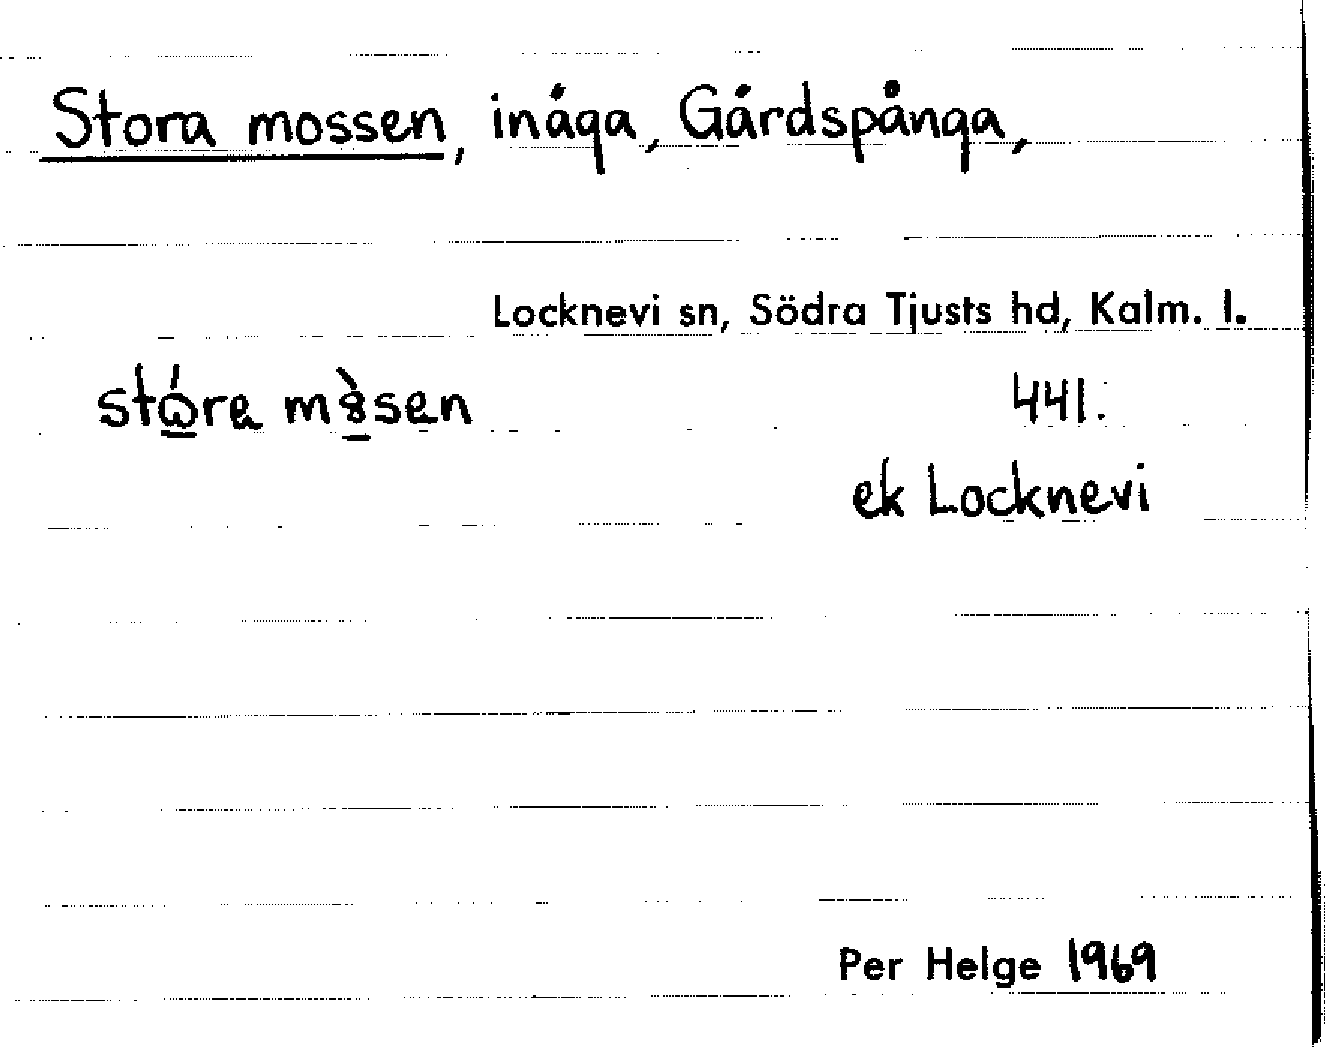 Stora mossen, inåga, Gårdspånga,
Locknevi sn, Södra Tjusts hd, Kalm. l.
441.
ek Locknevi
Per Helge 1969